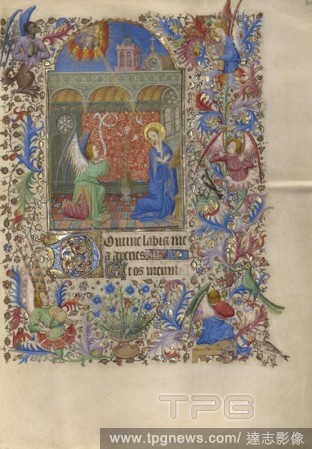 Domine labia me
a aperies
et os meum
TPG
www.tpgnews.com/達志影像